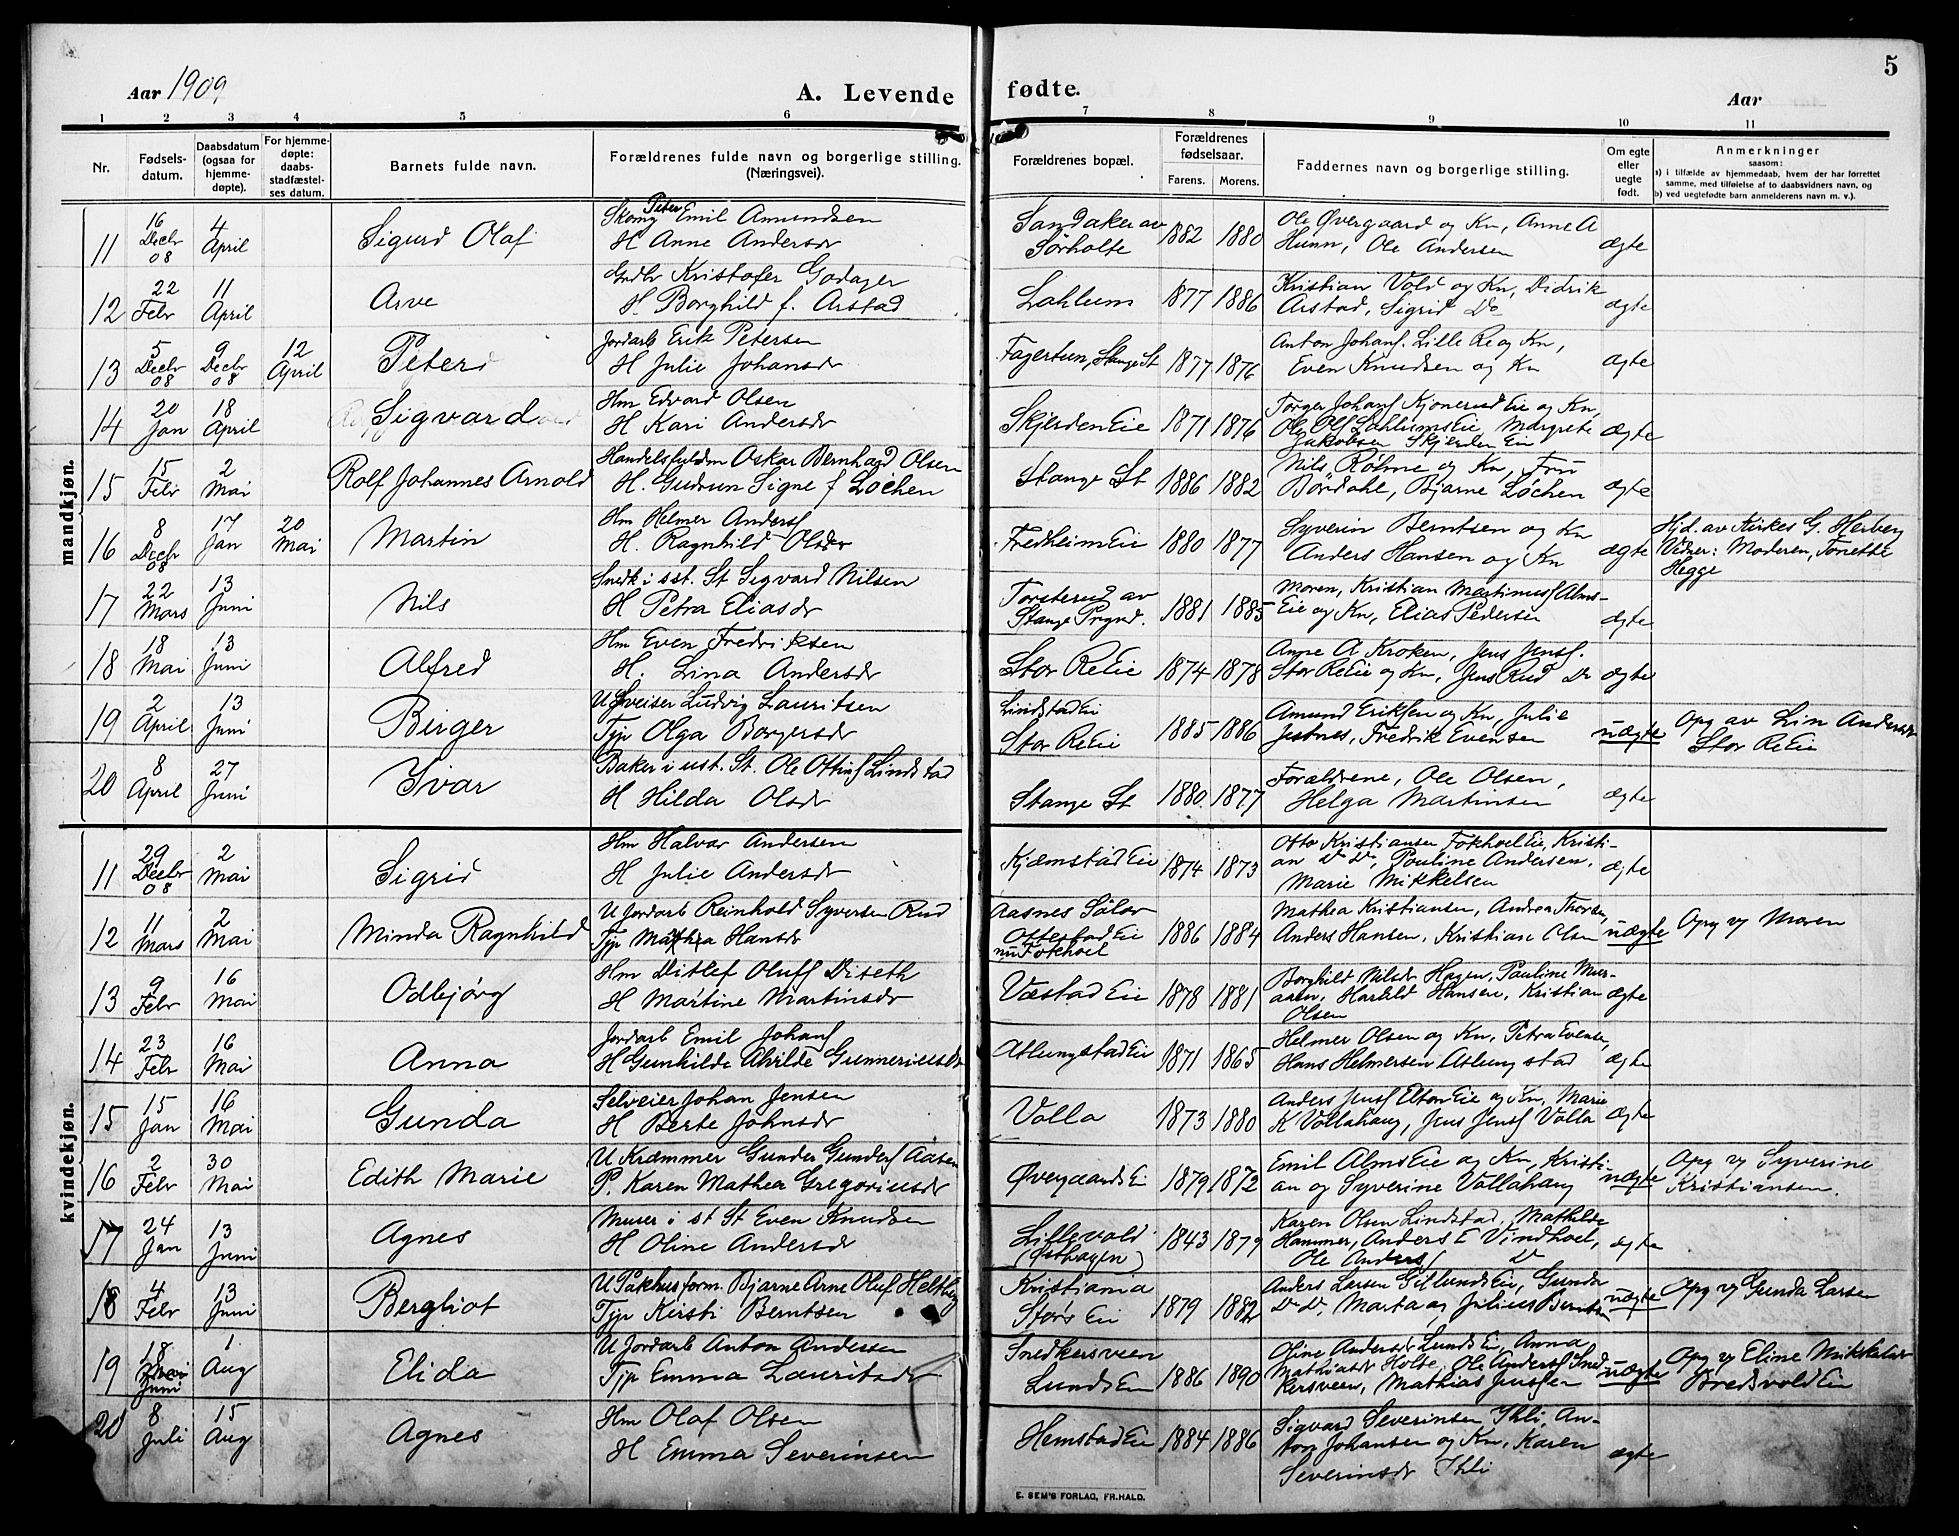 5
Aar 1909
A. Levende fødte.
Aar
1 2 3 4 5 6 7 8 9 10 11
Nr.
Fødsels-
datum.
Daabsdatum
(ogsaa for
hjemme-
døpte).
For hjemme-
døpte:
daabs-
stadfæstel-
ses datum.
Barnets fulde navn.
Forældrenes fulde navn og borgerlige stilling.
(Næringsvei).
Forældrenes bopæl.
Forældrenes
fødselsaar.
Farens. Morens.
Faddernes navn og borgerlige stilling.
Om egte
eller
uegte
født.
Anmerkninger
saasom:
a) i tilfælde av hjemmedaab, hvem der har forrettet
samme, med tilføielse af to daabsvidners navn, og
b) ved uegtefødte barn anmelderens navn m. v.).
mandkjøn.
11
16
Decbr
08
4
April
Sigurd Olaf
Peter
Skomg Emil Amundsen
H Anne Andersdr
Sandaker av
Sørholte
1882 1880
Ole Øvergaard og Kn, Anne A
Hunn, Ole Andersen
ægte
12
22
Febr
11
April
Arve
Grdbr Kristofer Godager
H. Borghild f. Arstad
Lahlum
1877 1886
Kristian Vold og Kn, Didrik
Arstad, Sigrid Do
ægte
13
5
Decbr
08
9
Decbr
08
12
April
Peter
Jordarb Erik Petersen
H Julie Johansdr
Fagertun, Stange St
1877 1876
Anton Johans. Lille Re og Kn,
Even Knudsen og Kn
ægte
14
20
Jan
18
April
Sigvard
Hm Edvard Olsen
H Kari Andersdr
Skjerden Eie
1871 1876
Torger Johans Kjonerud Eie og Kn,
Ole Ols Lahlums Eie, Margrete
Jakobsen Skjerden Eie
ægte
15
15
Febr
2
Mai
Rolf Johannes Arnold
Handelsfuldm Oskar Bernhard Olsen
H. Gudrun Signe f Løchen
Stange St
1886 1882
Nils Røhme og Kn, Fru
Børdahl, Bjarne Løchen
ægte
16
8
Decbr
08
17
Jan
20
Mai
Martin
Hm Helmer Anders
H. Ragnhild Olsdr
Fredheim Eie
1880 1877
Syverin Berntsen og Kn
Anders Hansen og Kn
ægte
Hjd. av Kirkes G. Herberg
Vidner: Moderen, Torrette
Hegge
17
22
Mars
13
Juni
Nils
Snedk i sst. St Sigvard Nilsen
H Petra Eliasdr
Torsterud av
Stange Prgrd.
1881 1885
Moren, Kristian Martinus Alms-
Eie og Kn, Elias Pedersen
ægte
18
18
Mai
13
Juni
Alfred
Hm Even Fredriksen
H. Lina Andersdr
Stor Re Eie
1874 1878
Anne A Kroken, Jens Jens.
Stor Re Eie og Kn, Jens Rud Do
ægte
19
2
April
13
Juni
Birger
U Sveiser Ludvig Lauritsen
Typ Olga Borgersdr
Lindstad Ei
Stor Re Eie
1885 1886
Amund Eriksen og Kn, Julie
Jestnes, Fredrik Evensen
uægte
Opg av Lin Andersdr
Stor Re Eie
20
8
April
27
Juni
Ivar
Baker i ust. St. Ole Ottins Lindstad
H Hilda Olsdr
Stange St
1880 1877
Forældrene, Ole Olsen,
Helga Martinsen
ægte
kvindekjøn.
11
29
Decbr
08
2
Mai
Sigrid
Hm Halvor Andersen
H Julie Andersdr
Kjæmstad Eie
1874 1873
Otto Kristiansen Fokhol Eie, Kristi-
an Do Do, Pauline Andersen,
Marie Mikkelsen
ægte
12
11
Mars
2
Mai
Minda Ragnhild
U Jordarb Reinhold Syversen Rud
Typ Mathea Hansdr
Aasnes Sølør
Ottestad Eie
nu Fokhol
1886 1884
Mathea Kristiansen, Andrea Thorsen,
Anders Hansen, Kristian Olsen
uægte
Opg v Moren
13
9
Febr
16
Mai
Odbjørg
Hm Ditlef Olufs Diseth
H Martine Martinsdr
Væstad Eie
1878 1881
Borghild Nilsdr Hagen, Pauline Mur-
aalen, Harald Hansen, Kristian
Olsen
ægte
14
23
Febr
16
Mai
Anna
Jordarb Emil Johans
H Gunhilde Alvilde Gunneriusdr
Atlungstad Eie
1871 1865
Helmer Olsen og Kn, Petra Evensen,
Hans Helmersen Atlungstad
ægte
15
15
Jan
16
Mai
Gunda
Selveier Johan Jensen
H Berte Johnsdr
Volla
1873 1880
Anders Jens Elton Eie og Kn, Marie
K Vollahaug, Jens Jens Volla
ægte
16
2
Febr
30
Mai
Edith Marie
U Kræmmer Gunder Gunders Aasen
P. Karen Mathea Gregoriusdr
Øvergaards Ei
1879 1872
Emil Alms Eie og Kn, Kristi-
an og Syverine Vollahaug
uægte
Opg v Syverine
Kristiansen.
17
24
Jan
13
Juni
Agnes
Murer i st St Even Knudsen
H Oline Andersdr
Lillevold
(Østhagen)
1843 1879
Karen Olsen Lindstad, Mathilde
Hammer, Anders E Vindhol,
Ole Anders Do
ægte
18
4
Febr
13
Juni
Bergliot
U Pakhusform. Bjarne Arne Oluf Heltberg
Typ Kirsti Berntsen
Kristiania
Stórs Eie
1879 1882
Anders Larsen Gillunds Eie, Gunda
Do Do, Marta og Julius Berntsen
uægte
Opg v Gunda Larsen
19
18
Juni
1
Aug
Elida
U Jordarb Anton Andersen
Typ Emma Lauritsdr
Snedkersveen
Lunds Ei
1886 1890
Oline Andersdr Lunds Ei, Anna
Mathiasdr Holte, Ole Anders Sned-
kersveen, Mathias Jensen
uægte
Opg v Eline Mikkelsdr
Bredsvold Eie
20
8
Juli
15
Aug
Agnes
Hm Olaf Olsen
H Emma Severinsen
Hemstad Eie
1884 1886
Sigvard Severinsen Ihli, An-
ton Johansen og Kn, Karen
Severinsdr Ihli
ægte
E. SEM'S FORLAG, FR.HALD.